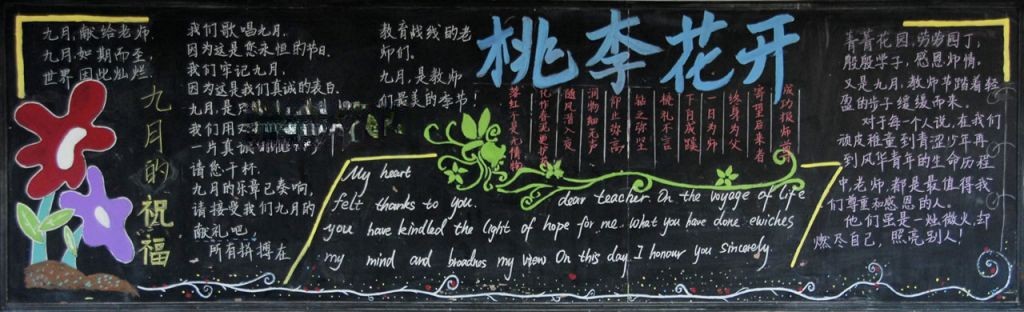 九月,献给老师.
九月,如期而至,
世界因此灿烂.
九月的祝福
我们歌唱九月.
因为这是您永恒的节日.
我们牢记九月.
因为这是我们真诚的表白.
九月,是
我们用
一片真
请您干杯.
九月的乐章已奏响,
请接受我们九月的
献礼吧,
所有拼搏在
教育战线的老
师们.
九月,是教师
们最美的季节!
桃李花开
成功报师首
寄望后来者
终身为父
一日为师
下自成蹊
桃李不言
钻之弥坚
仰止弥高
润物细无声
随风潜入夜
化作春泥更护花
落红不是无情物
My heart
felt thanks to you. dear teacher. On the voyage of life
you have kindled the light of hope for me. what you have done ewiches
my mind and broadnes my view On this day I honour you sincerely.
菁菁花园,劳劳园丁,
殷殷学子,感恩师情,
又是九月,教师节踏着轻
盈的步子缓缓而来.
对于每个人说,在我们
顽皮稚童到青涩少年再
到风华青年的生命历程
中,老师都是最值得我
们尊重和感恩的人。
他们虽是一烛微火,却
燃尽自己,照亮别人!